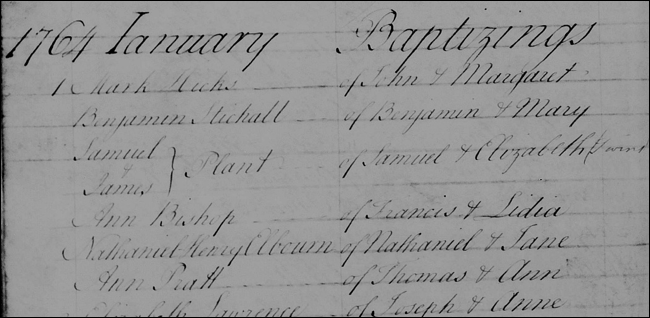 1764 January Baptizings
1 Mark Hicks of John & Margaret
Benjamin Michall of Benjamin & Mary
Samuel
& } Plant of Samuel & Elizabeth (Twins
James
Ann Bishop of Francis & Lidia
Nathaniel Henry of Nathaniel & Jane
Ann Pratt of Thomas & Ann
Elizabeth Lawrence of Joseph & Anne